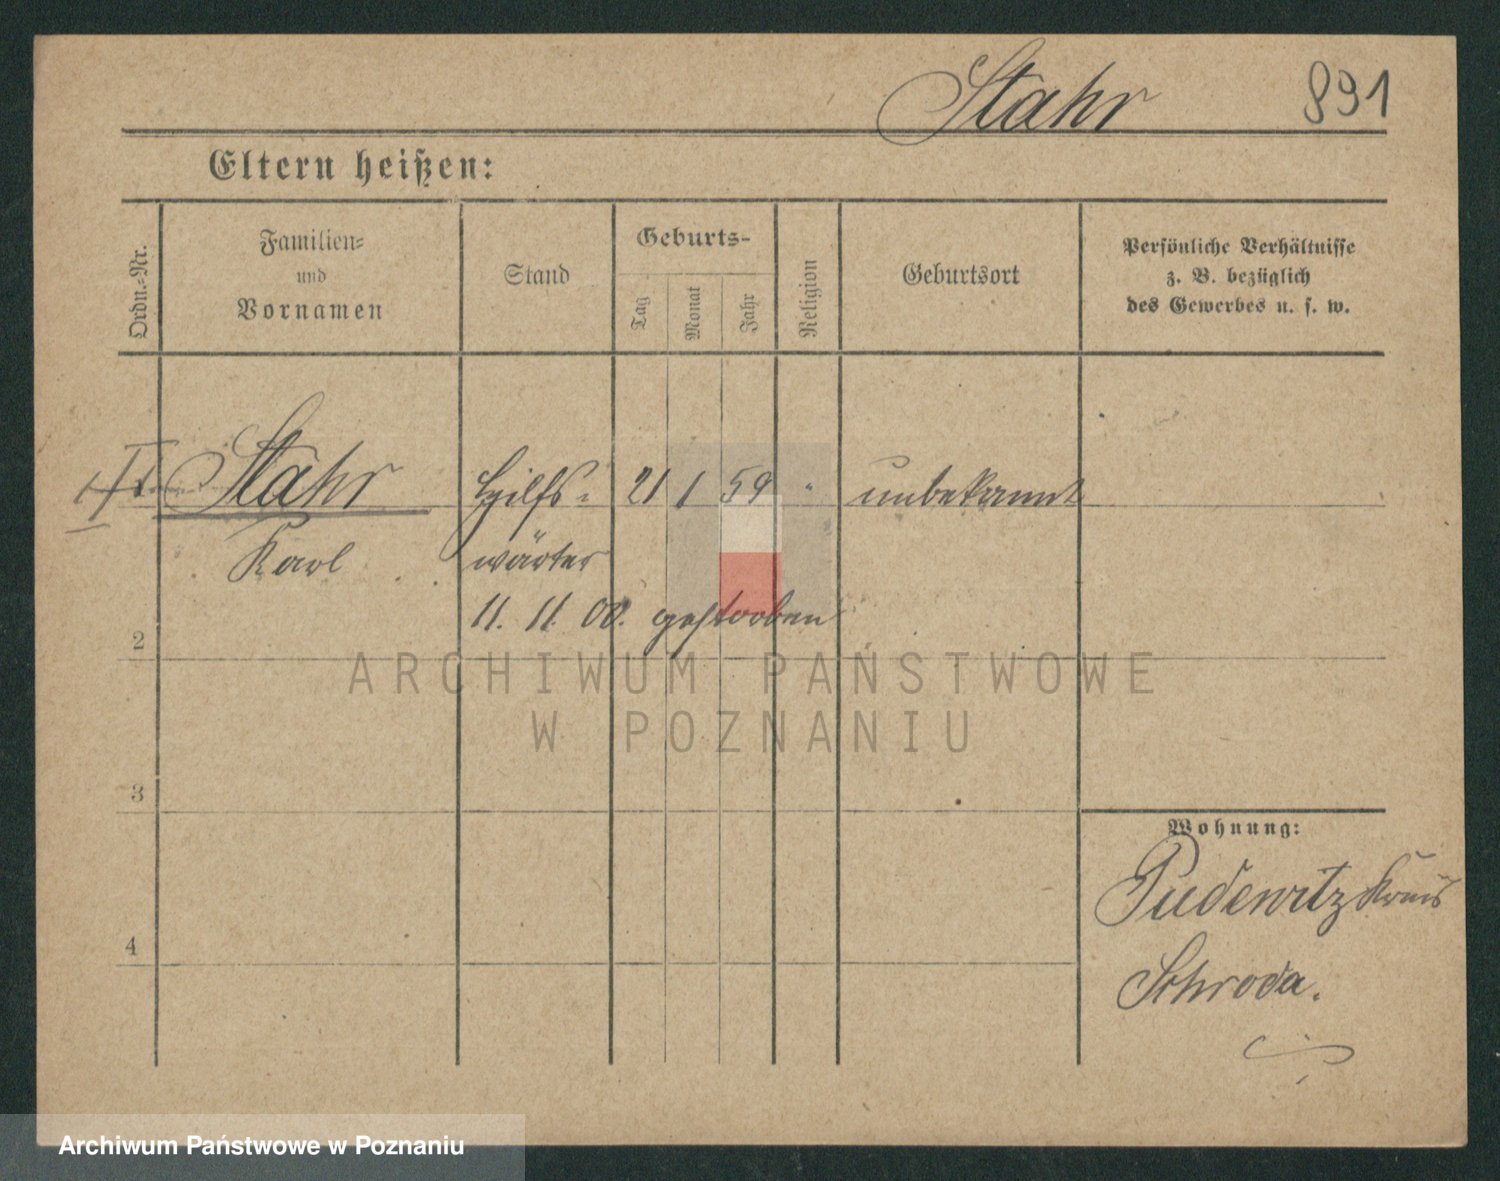 Stahr 891
Eltern heißen:
Ordn.-Nr.
Familien-
und
Vornamen
Stand
Geburts-
Tag
Monat
Jahr
Religion
Geburtsort
Persönliche Verhältnisse
z. B. bezüglich
des Gewerbes u. s. w.
Stahr Hilfs- 21 1 59 " unbekannt
Karl wärter
11. 11. 08. gestorben
2
3
4
Wohnung:
Pudewitz Kreis
Schroda.
ARCHIWUM PAŃSTWOWE
W POZNANIU
Archiwum Państwowe w Poznaniu